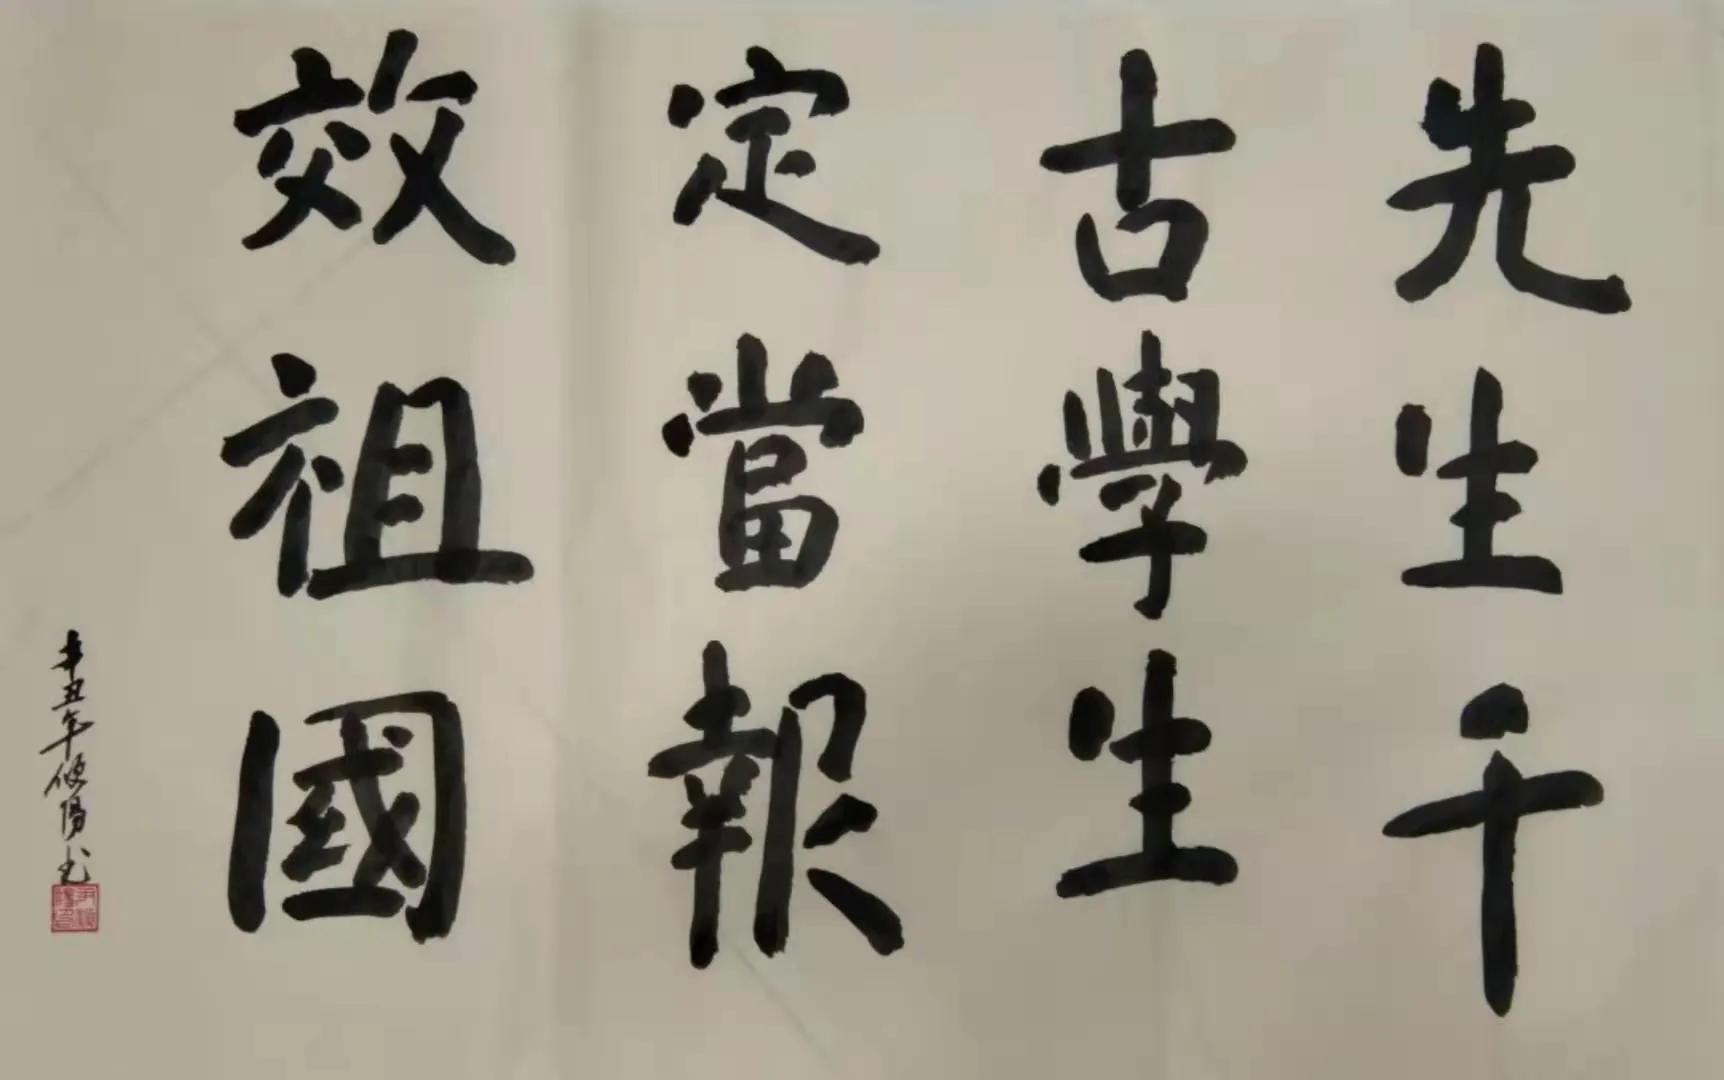 先生千
古學生
定當報
效祖國
辛丑年
陽书